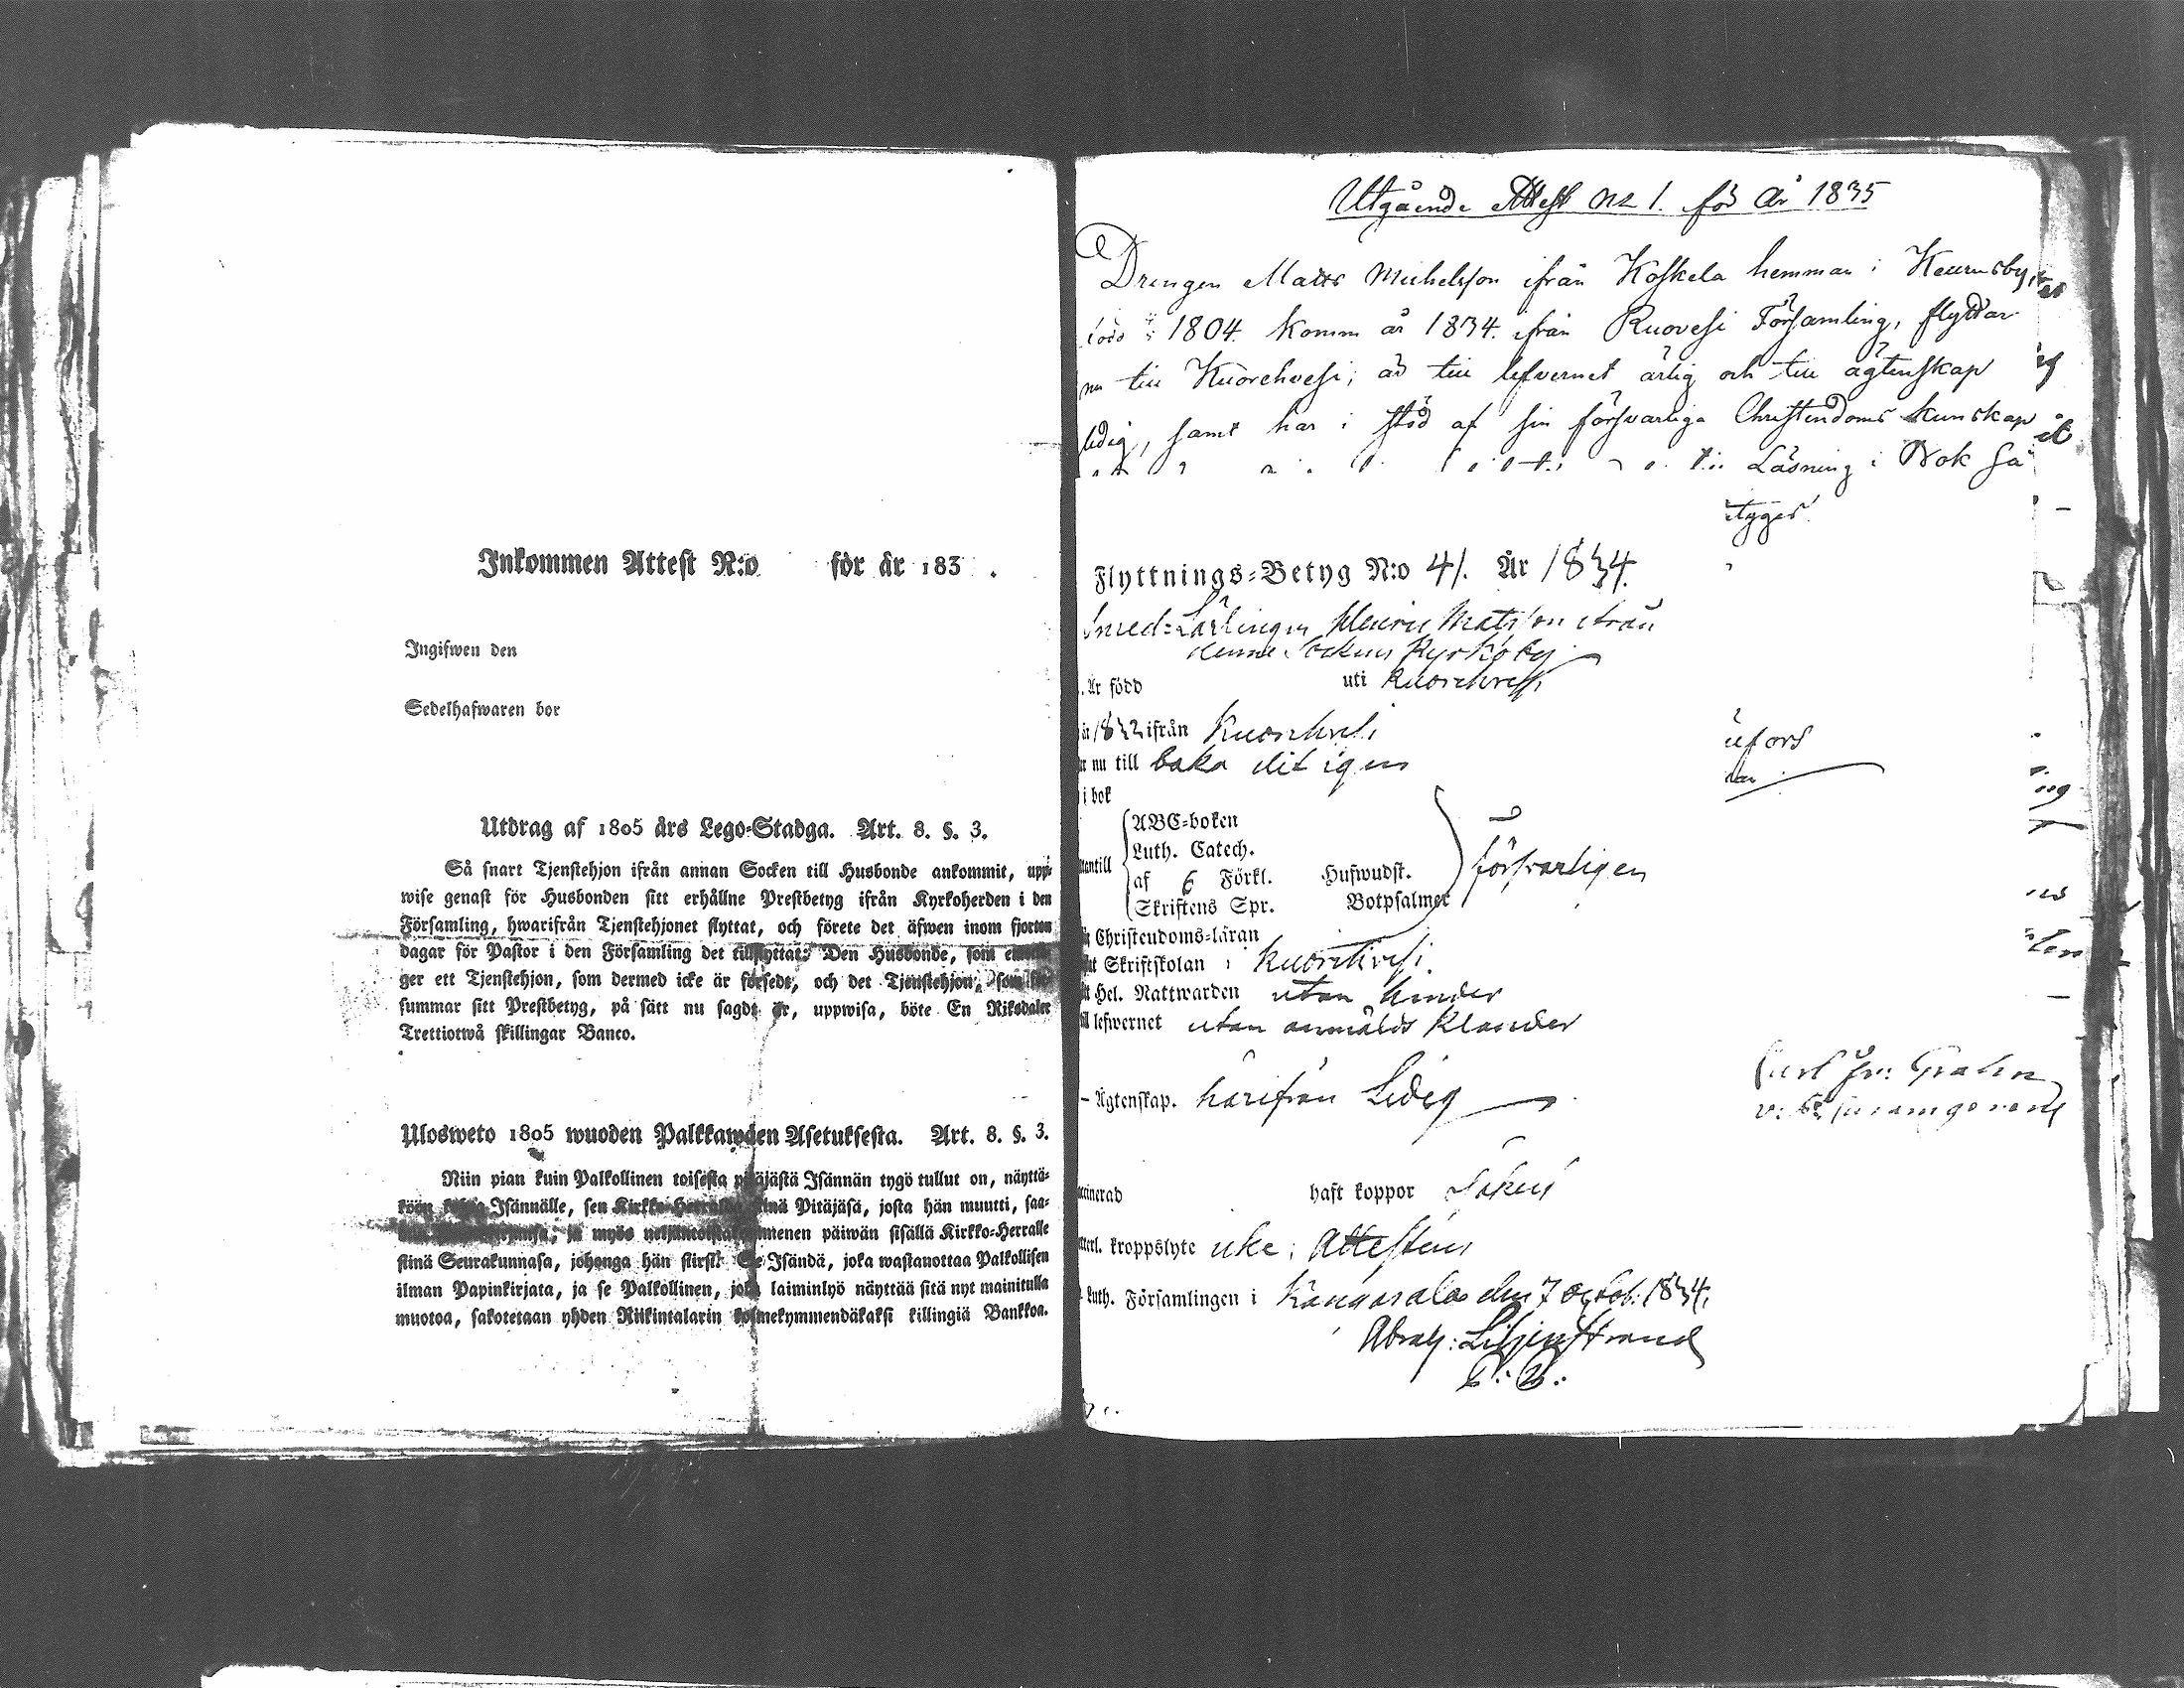 Inkommen Attest N:o för år 183 .
Ingifwen den
Sedelhafwaren bor
Utdrag af 1805 års Lego-Stadga. Art. 8. §. 3.
Så snart Tjenstehjon ifrån annan Socken till Husbonde ankommit, upp-
wise genast för Husbonden sitt erhållne Prestbetyg ifrån Kyrkoherden i den
Församling, hwarifrån Tjenstehjonet flyttat, och förete det äfwen inom fjorton
dagar för Pastor i den Församling det tillflyttat: Den Husbonde, som
ger ett Tjenstehjon, som dermed icke är försedt, och det Tjenstehjon, som
summar sitt Prestbetyg, på sätt nu sagdt är, uppwisa, böte En Riksdaler
Trettiotwå skillingar Banco.
Ulosweto 1805 wuoden Palkkawäen Asetuksesta. Art. 8. §. 3.
Niin pian kuin Palkollinen toisesta pitäjästä Isännän tygö tullut on, näyttä-
köön Isännälle, sen Kirkko-Herralda siinä Pitäjäsä, josta hän muutti, saa-
ja myös päiwän sisällä Kirkko-Herralle
siinä Seurakunnasa, johonga hän siirsi: Se Isändä, joka wastanottaa Palkollisen
ilman Papinkirjata, ja se Palkollinen, joka laiminlyö näyttää sitä nyt mainitulla
muotoa, sakotetaan yhden Riikintalarin kolmekymmendäkaksi killingiä Bankkoa.
Utgående Attest No 1. för år 1835
Drengen Matts Michelsson ifrån Koskela hemman i Keurusby,
1804. komm år 1834. ifrån Ruovesi Församling, flyttar
nu till Kuorehvesi; är till lefvernet ärlig och till ägtenskap
ledig, samt har i stöd af sin försvarliga Christendoms kunskap
Läsning i Bok
Flyttnings-Betyg N:o 41. År 1834.
Smed-Lärlingen Henric Matsson ifrån
denne Sockens Kyrkoby
Är född uti Kuorehvesi
år 1832 ifrån Kuorehvesi
nu till baka dit igen
i bok
ABC-boken
Luth. Catech.
af 6 Förkl. Hufwudst.
Skriftens Spr. Botpsalmer
försvarligen
Christendoms-läran
Skriftskolan i Kuorehvesi.
Hel. Nattwarden utan hinder
lefwernet utan anmäldt klander
Ägtenskap. härifrån Ledig
haft koppor
kroppslyte icke; Attesteras
Luth. Församlingen i Kangasala den 7 Octob. 1834.
Abrah: Liljenstrand